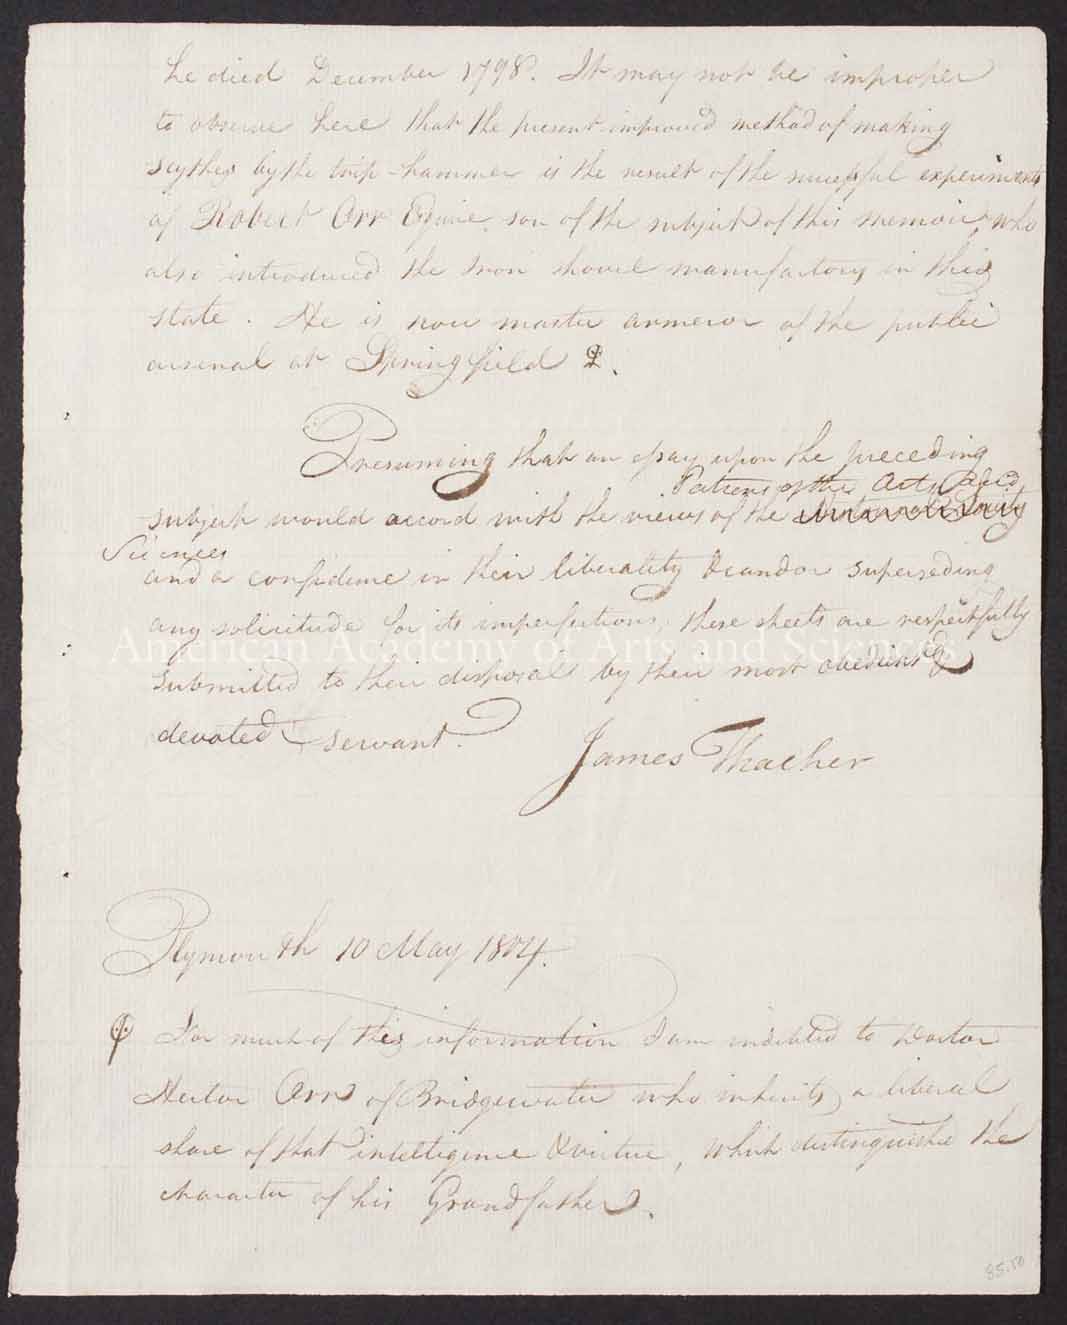 he died December 1798. It may not be improper
to observe here that the present improved method of making
scythes by the trip-hammer is the result of the successful experiments
of Robert Orr Esquire, son of the subject of this memoir, who
also introduced the Iron shovel manufactory in this
state. He is now master armeror of the public
arsenal at Springfield ⚲.
Presuming that an essay upon the preceding
Patrons of the Arts and
subject would accord with the views of the
Sciences
and a confidence in their liberality & candor superseding
any solicitude for its imperfections, these sheets are respectfully
American Academy of Arts and Sciences
submitted to their disposals by their most obedient &
devoted servant.
James Thacher
Plymouth 10 May 1804.
For much of this information I am indebted to Doctor
Hector Orr of Bridgewater who inherits a liberal
share of that intelligence & virtue, which distinguished the
character of his Grandfather.
85.10